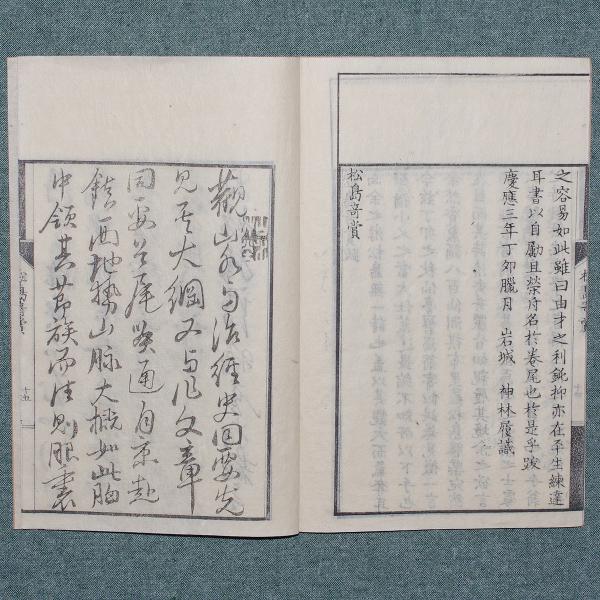 之容易如此雖曰由才之利鈍抑亦在平生練達
耳書以自勵且榮府名於卷尾也於是乎跋
慶應三年丁卯臘月 岩城 神林履識
松島奇賞
觀山水与治經史同要先
見其大綱又与作文章
同要首尾貫通自東赴
鎮西地勢山脉大概如此胸
中領其節族而往則眼裏
松島奇賞
十五